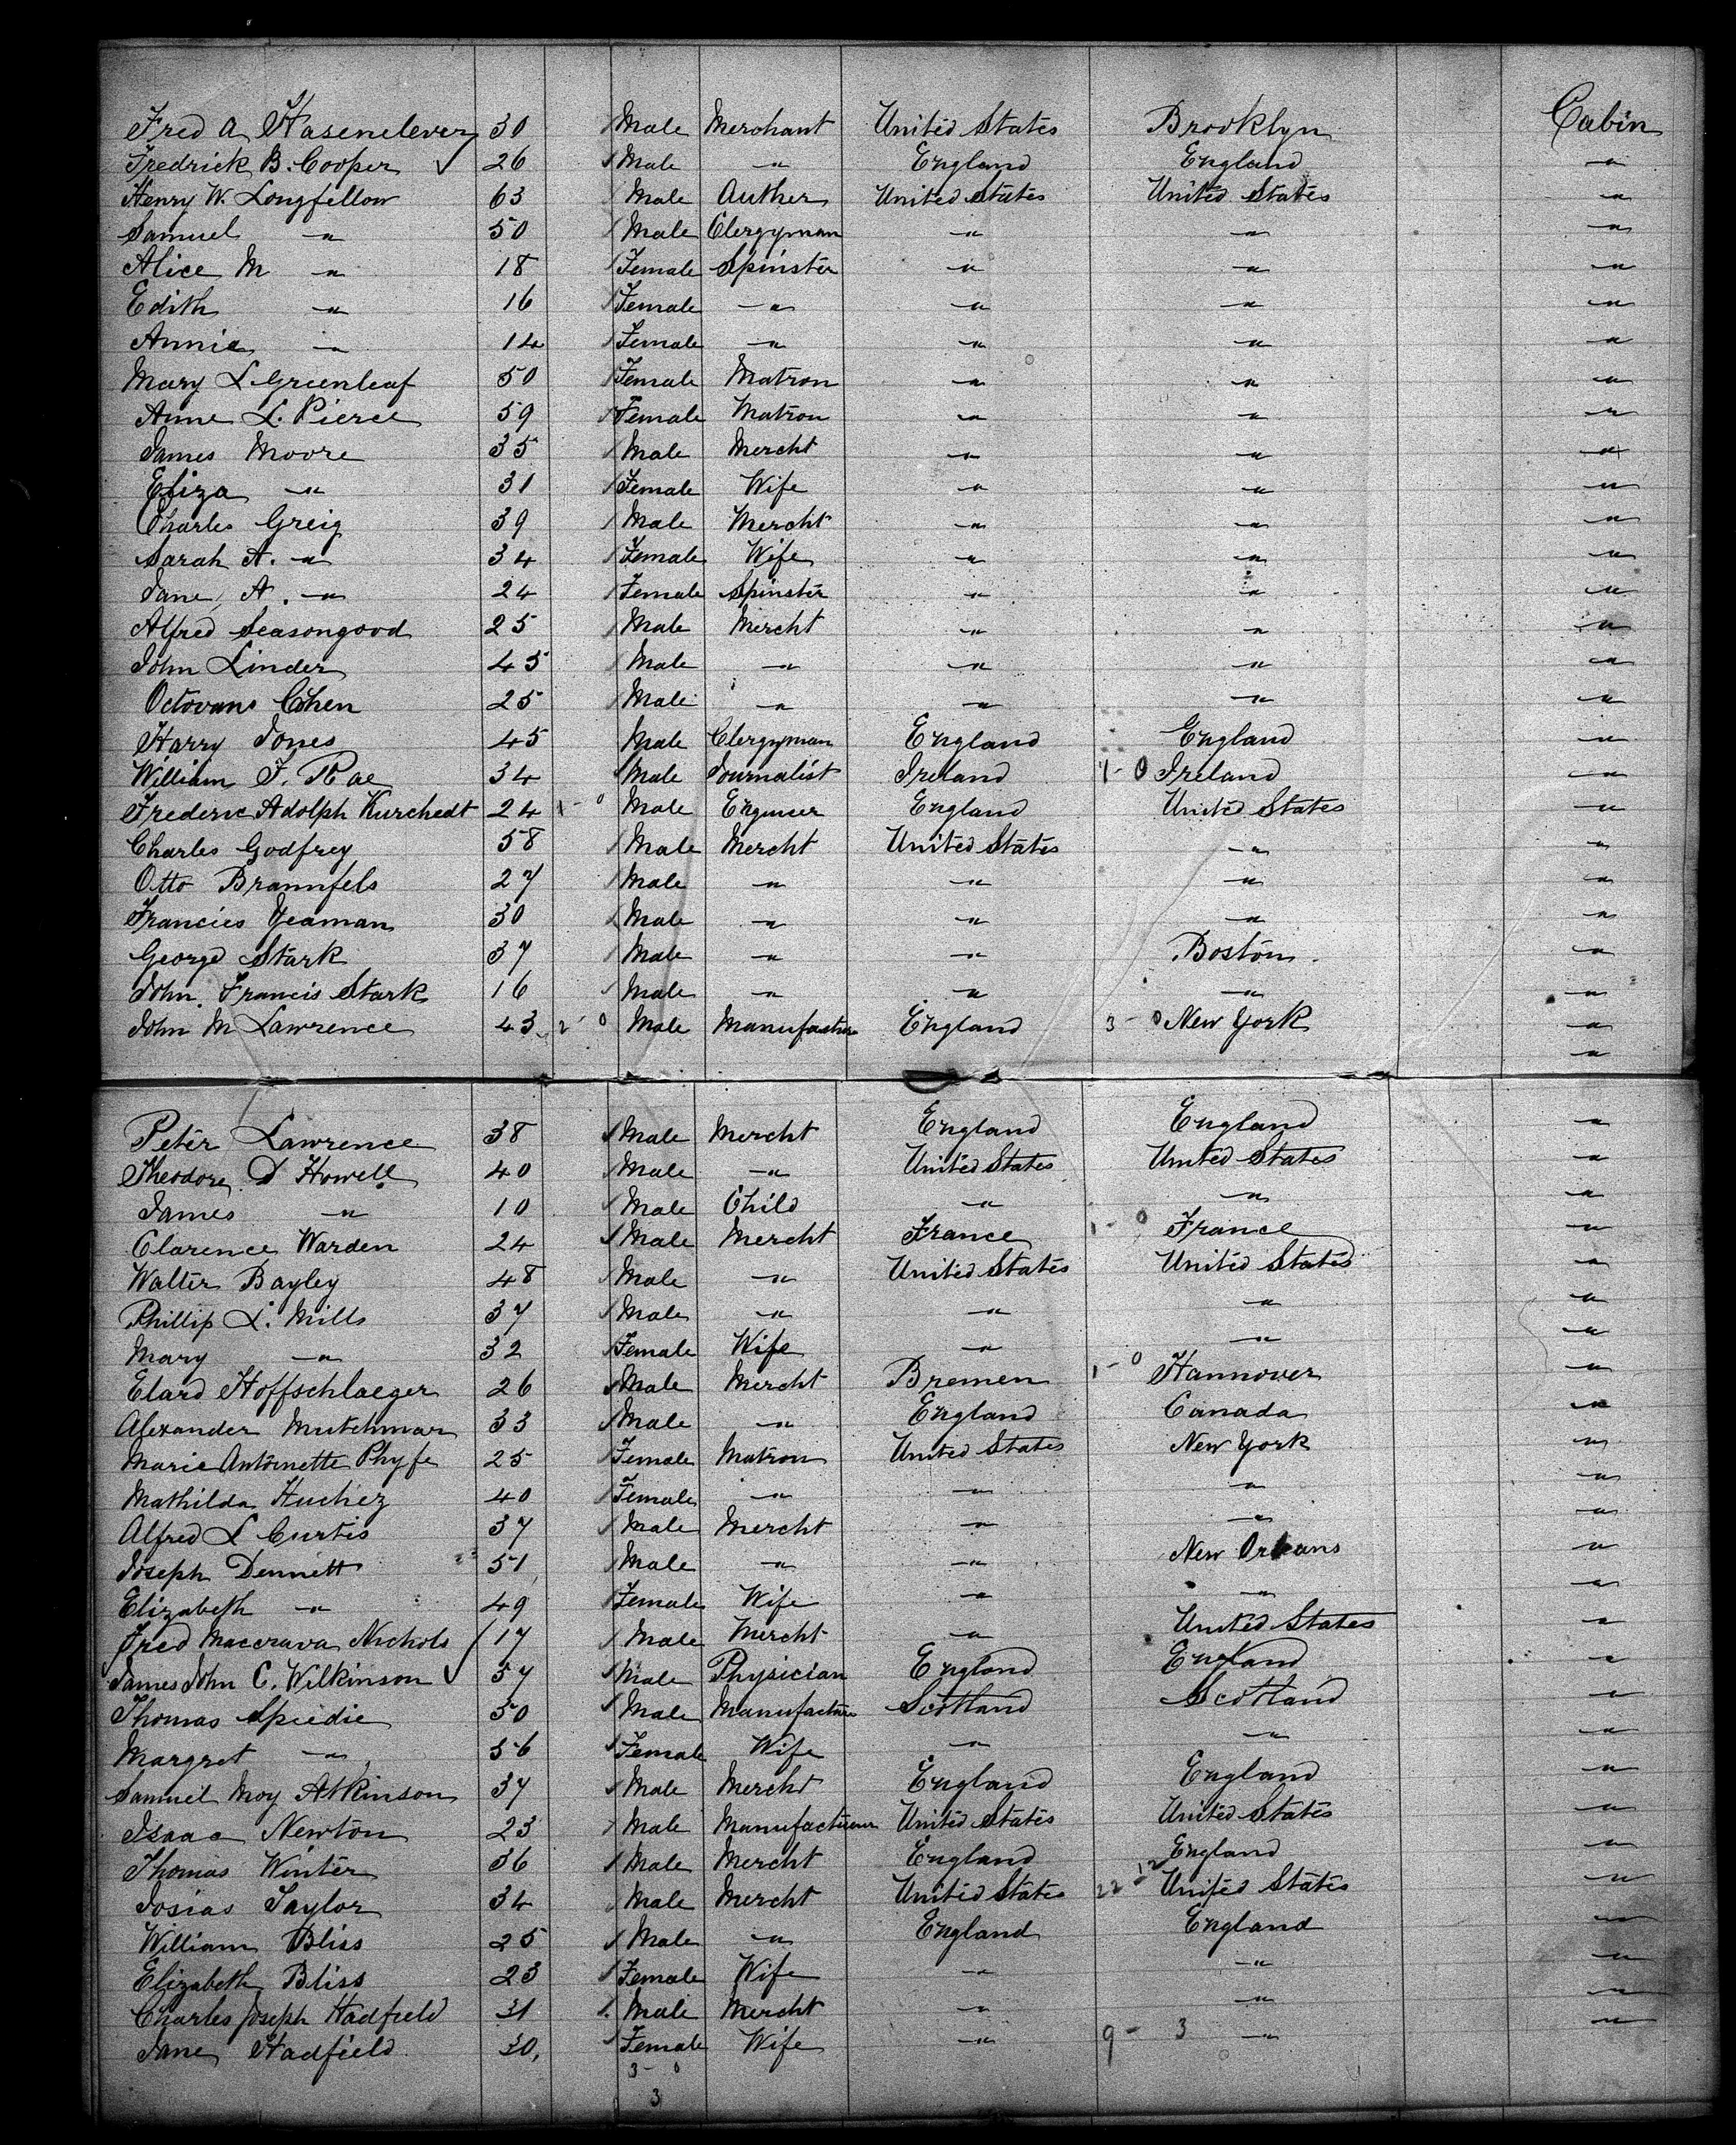 Fred A Hasenclever 30 / Male Merchant United States Brooklyn Cabin
Fredrick B. Cooper ✓ 26 / Male —"— England England —"—
Henry W. Longfellow 63 / Male Auther United States United States —"—
Samuel —"— 50 / Male Clergyman —"— —"— —"—
Alice M —"— 18 / Female Spinster —"— —"— —"—
Edith —"— 16 / Female —"— —"— —"— —"—
Annie —"— 14 / Female —"— —"— —"— —"—
Mary L Greenleaf 50 / Female Matron —"— —"— —"—
Anne L. Pierce 59 / Female Matron —"— —"— —"—
James Moore 35 / Male Mercht —"— —"— —"—
Eliza —"— 31 / Female Wife —"— —"— —"—
Charles Greig 39 / Male Mercht —"— —"— —"—
Sarah A. —"— 34 / Female Wife —"— —"— —"—
Jane A. —"— 24 / Female Spinster —"— —"— —"—
Alfred Seasongood 25 / Male Mercht —"— —"— —"—
John Linder 45 / Male —"— —"— —"— —"—
Octovans Cohen 25 / Male —"— —"— —"— —"—
Harry Jones 45 Male Clergyman England England —"—
William F. Rae 34 / Male Journalist Ireland 4-0 Ireland —"—
Frederic Adolph Kurchedt 24 1-0 Male Engineer England United State —"—
Charles Godfrey 58 / Male Mercht United States —"— —"—
Otto Braunfels 27 / Male —"— —"— —"— —"—
Francies Yeaman 30 / Male —"— —"— —"— —"—
George Stark 37 / Male —"— —"— Boston. —"—
John. Francis Stark 16 / Male —"— —"— —"— —"—
John M Lawrence 43 2-0 Male Manufactur England 3-0 New York —"—
—"—
Peter Lawrence 38 / Male Mercht England England —"—
Theodore D Howell 40 / Male —"— United States United States —"—
James —"— 10 / Male Child —"— —"— —"—
Clarence Warden 24 / Male Mercht France 1-0 France —"—
Walter Bayley 48 / Male —"— United States United States —"—
Phillip L. Mills 37 / Male —"— —"— —"— —"—
Mary —"— 32 / Female Wife —"— —"— —"—
Elard Hoffschlaeger 26 / Male Mercht Bremen 1-0 Hannover —"—
Alexander Mutchmar 33 / Male —"— England Canada —"—
Marie Antoinette Phyfe 25 / Female Matron United States New York —"—
Mathilda Huchez 40 / Female —"— —"— —"— —"—
Alfred L Curtis 37 / Male Mercht —"— —"— —"—
Joseph Dennett 51 / Male —"— —"— New Orleans —"—
Elizabeth —"— 49 / Female Wife —"— —"— —"—
Fred Nichols / 17 / Male Mercht —"— United States —"—
James John C. Wilkinson ✓ 57 / Male Physician England England —"—
Thomas Speedie 50 / Male Manufactur Scotland Scotland —"—
Margret —"— 56 / Female Wife —"— —"— —"—
Samuel Moy Atkinson 37 / Male Mercht England England —"—
Isaac Newton 23 / Male Manufacturer United States United States —"—
Thomas Winter 36 / Male Mercht England England —"—
Josias Taylor 34 / Male Mercht United States 22-12 United States —"—
William Bliss 25 / Male —"— England England —"—
Elizabeth Bliss 23 / Female Wife —"— —"— —"—
Charles Joseph Hadfield 31 / Male Mercht —"— —"— —"—
Jane Hadfield 30, / Female Wife —"— 9-3 —"— —"—
3-0
3